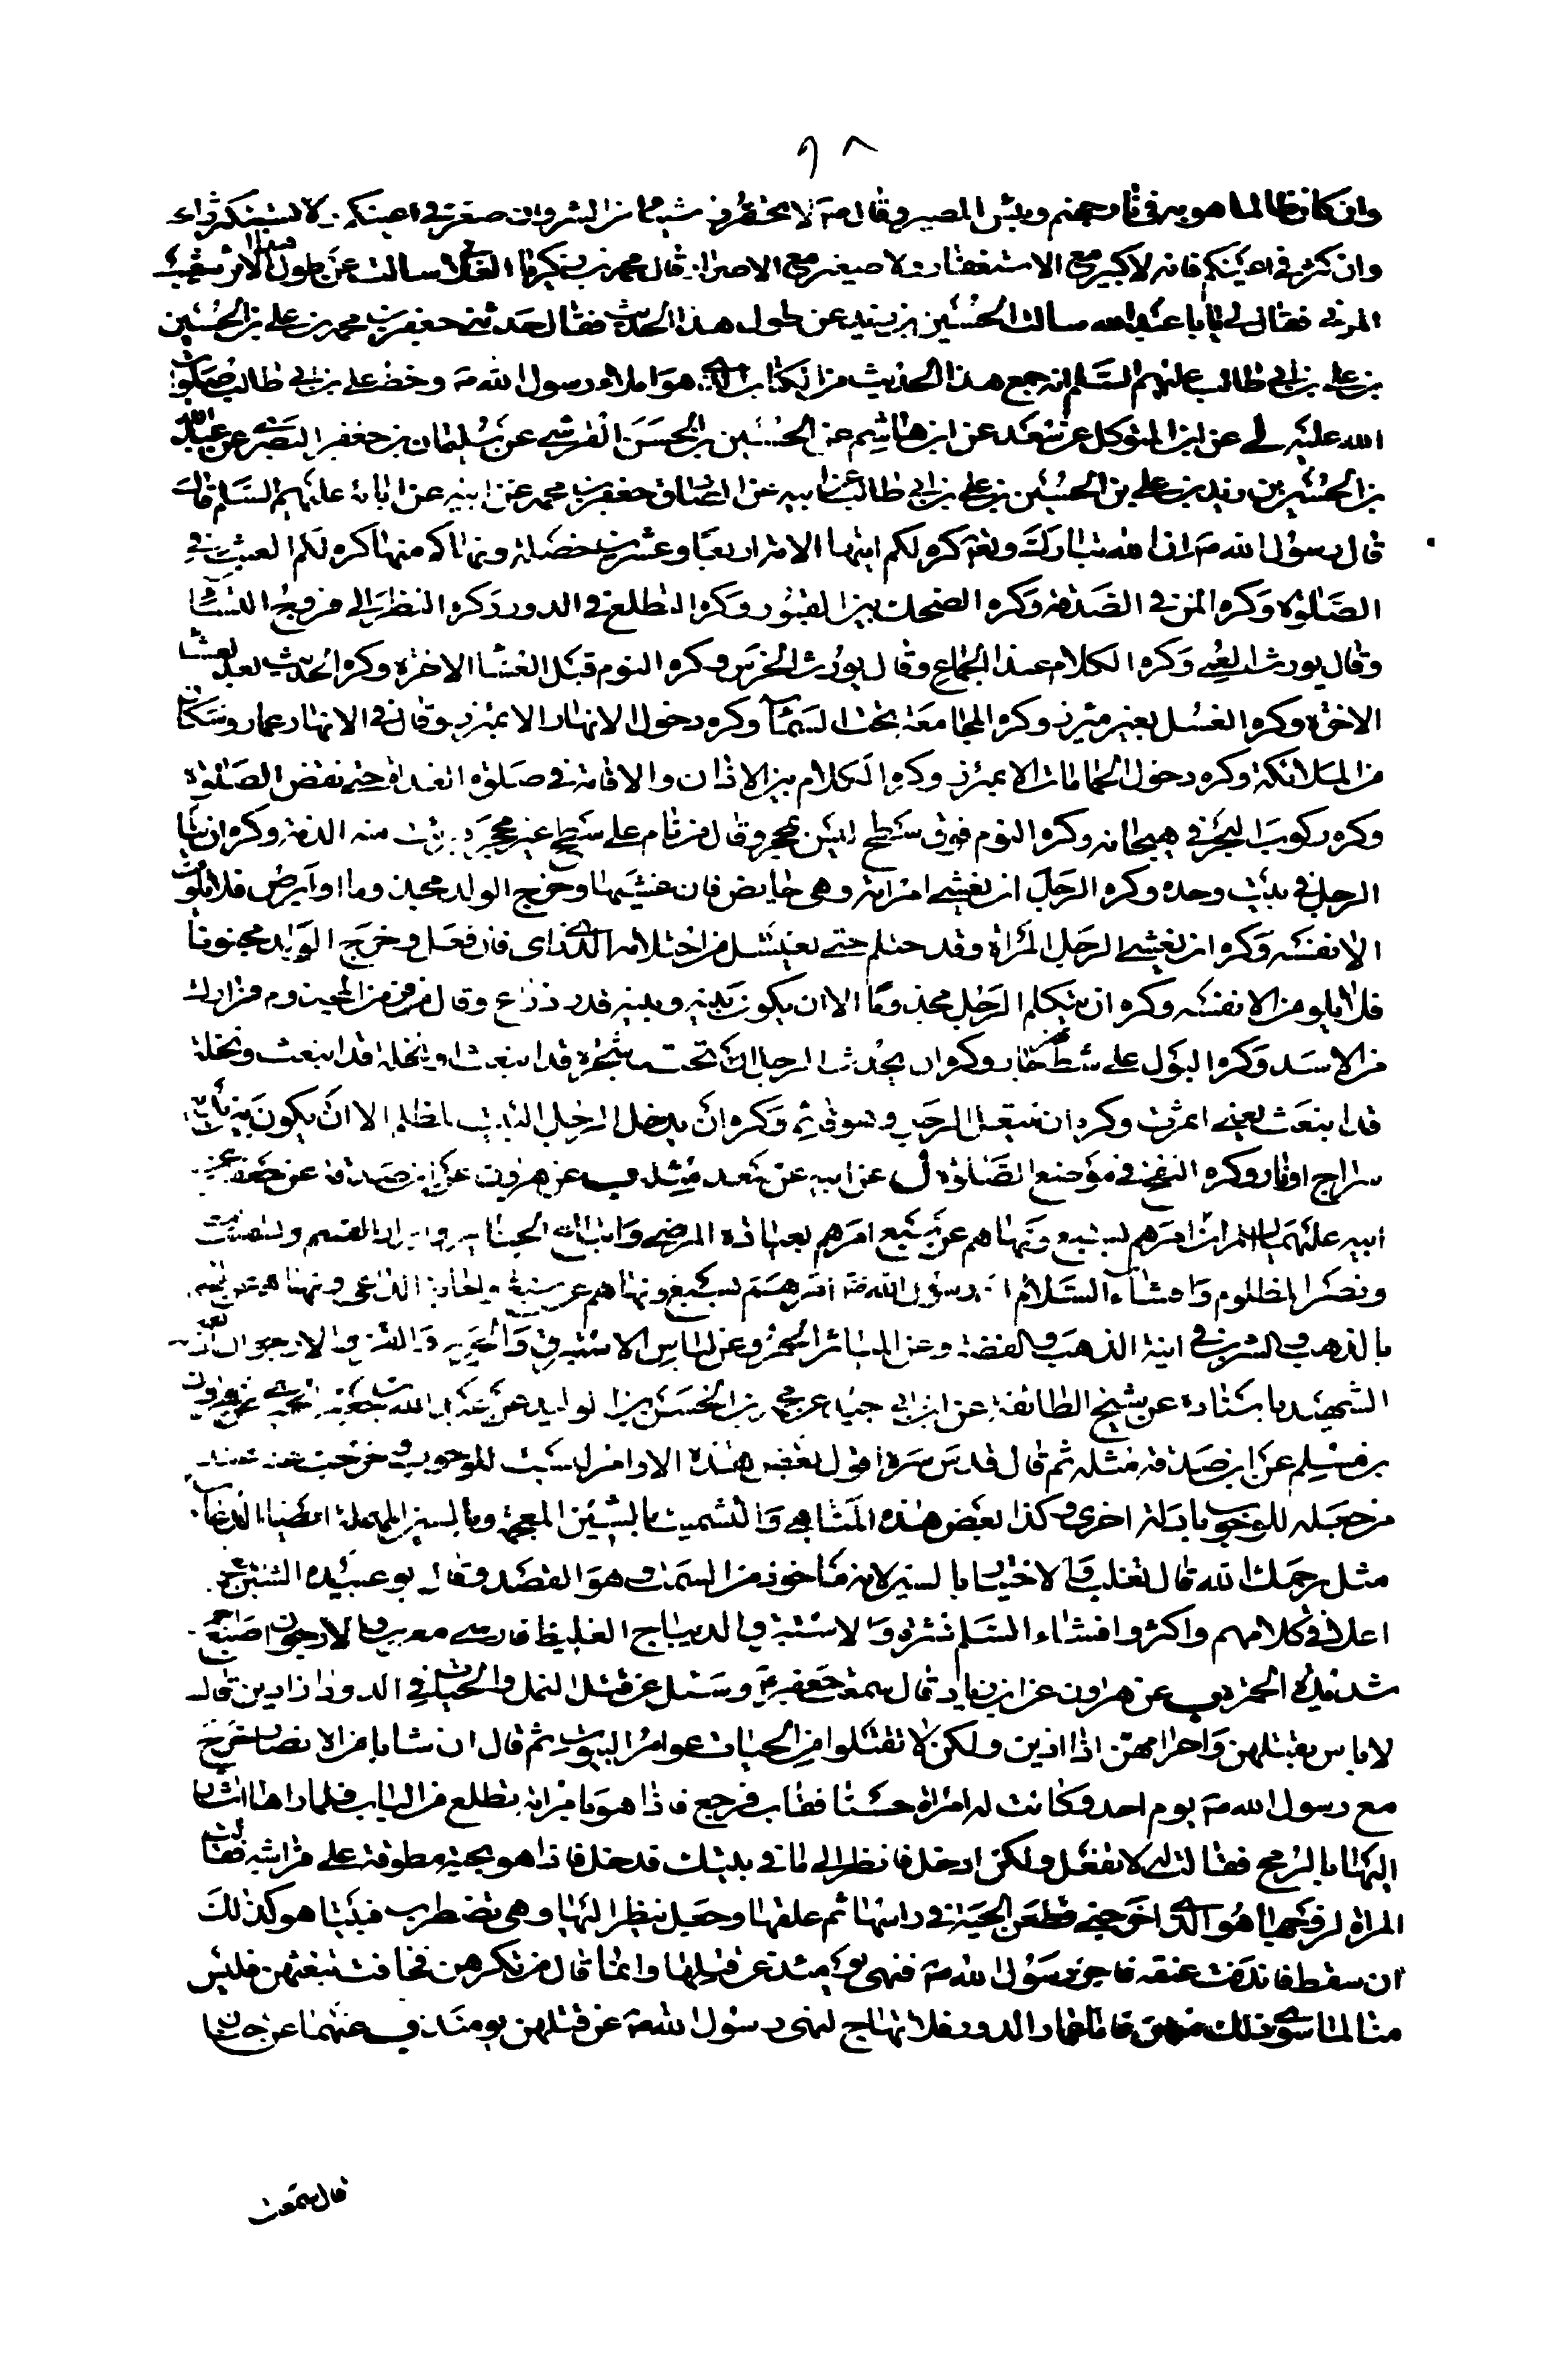 ٩٨
وان كان ظالما هو به في نار جهنم وبئس المصير وقال ص لا تحقروا شيئا من الشر وان صغر في اعينكم ولا تستكثروا
وان كثر في اعينكم فانه لا كبير مع الاستغفار ولا صغير مع الاصرار قال محمد بن زكريا الغلابي سالت عن طول هذا الاثر شعيب
المزني فقال لي يا با عبد الله سالت الحسين بن زيد عن طول هذا الحديث فقال حدثني جعفر بن محمد بن علي بن الحسين
بن علي بن ابي طالب عليهم السلم انه جمع هذا الحديث من الكتاب الذي هو املاء رسول الله ص وخط علي بن ابي طالب صلوات
الله عليه لي عن ابن المتوكل عن سعد عن ابن هاشم عن الحسين بن الحسن القرشي عن سليمان بن جعفر البصري عن عبد الله
بن الحسين بن زيد بن علي بن الحسين بن علي بن ابي طالب عن ابيه عن الصادق جعفر بن محمد عن ابيه عن ابائه عليهم السلم قال
قال رسول الله ص ان الله تبارك وتعالى كره لكم ايتها الامة اربعا وعشرين خصلة ونهاكم منها كره لكم العبث في
الصلوة وكره المن في الصدقة وكره الضحك بين القبور وكره التطلع في الدور وكره النظر الى فروج النساء
وقال يورث العمى وكره الكلام عند الجماع وقال يورث الخرس وكره النوم قبل العشا الاخرة وكره الحديث بعد العشا
الاخرة وكره الغسل بغير ميزر وكره المجامعة تحت السماء وكره دخول الانهار الا بميزر وقال في الانهار عمار وسكان
من الملائكة وكره دخول الحمامات الا بميزر وكره الكلام بين الاذان والاقامة في صلوة الغداة حتى تقضى الصلوة
وكره ركوب البحر في هيجانه وكره النوم فوق سطح ليس بمحجر وقال من نام على سطح غير محجر برئت منه الذمة وكره ان ينام
الرجل في بيت وحده وكره الرجل ان يغشى امراته وهي حايض فان غشيها وخرج الولد مجذوما او ابرص فلا يلومن
الا نفسه وكره ان يغشى الرجل المراة وقد احتلم حتى يغتسل من احتلامه الذي راى فان فعل وخرج الولد مجنونا
فلا يلومن الا نفسه وكره ان يكلم الرجل مجذوما الا ان يكون بينه وبينه قدر ذراع وقال فر من المجذوم فرارك
من الاسد وكره البول على شط نهر جار وكره ان يحدث الرجل تحت شجرة قد اينعت او نخلة قد اينعت ونخلة
قد اينعت يعني اثمرت وكره ان ينتعل الرجل وهو قائم وكره ان يدخل الرجل البيت المظلم الا ان يكون بين يديه
سراج او نار وكره النفخ في موضع الصلوة ل عن ابيه عن سعد مثله ب عن هرون عن ابن صدقة عن جعفر عن
ابيه عليهما السلم ان امرهم بسبع ونهاهم عن سبع امرهم بعيادة المرضى واتباع الجنايز وابرار القسم وتسميت
ونصر المظلوم وافشاء السلام رسول الله ص امرهم بسبع ونهاهم عن سبع واجابة الداعي ونهاهم عن التختم
بالذهب والشرب في انية الذهب والفضة وعن المياثر الحمر وعن لباس الاستبرق والحرير والقز والارجوان
الشهيد باسناده عن شيخ الطائفة عن ابن ابي جيد عن محمد بن الحسن بن الوليد عن عبد الله بن جعفر الحميري عن هرون
بن مسلم عن ابن صدقة مثله ثم قال قدس سره اقول بعض هذه الاوامر ليست للوجوب وخرجت عنه
من جعله للوجوب بادلة اخرى وكذا بعض هذه المناهي والتسميت بالشين المعجمة وبالسين المهملة ايضا الدعاء
مثل رحمك الله قال ثعلب والاختيار بالسين لانه ماخوذ من السمت وهو القصد وقال ابو عبيده الشين
اعلى في كلامهم واكثر وافشاء السلم نشره والاستبرق الديباج الغليظ فارسي معرب والارجوان صبغ احمر
شديد الحمرة ب عن هرون عن ابن زياد قال سمعت جعفر ع وسئل عن قتل النمل والحيات في الدور اذا اذين قال
لا باس بقتلهن واحراقهن اذا اذين ولكن لا تقتلوا من الحيات عوامر البيوت ثم قال ان شابا من الانصار خرج
مع رسول الله ص يوم احد وكانت له امراة حسنا فغاب فرجع فاذا هو بامراته تطلع من الباب فلما راها اشار
اليها بالرمح فقالت له لا تفعل ولكن ادخل فانظر الى ما في بيتك فدخل فاذا هو بحية مطوقة على فراشه فقالت
المراة لزوجها هو الذي اخرجني فطعن الحية في راسها ثم علقها وجعل ينظر اليها وهي تضطرب فبينا هو كذلك
ان سقط فاندقت عنقه فاخبر رسول الله ص فنهى يومئذ عن قتلها وانما قال من تركهن مخافة تبعتهن فليس
منا لما سوى ذلك منهن فاما عمار الدور فلا تهاج لنهي رسول الله ص عن قتلهن يومئذ ب عنهما عن حنان
قال سمعت